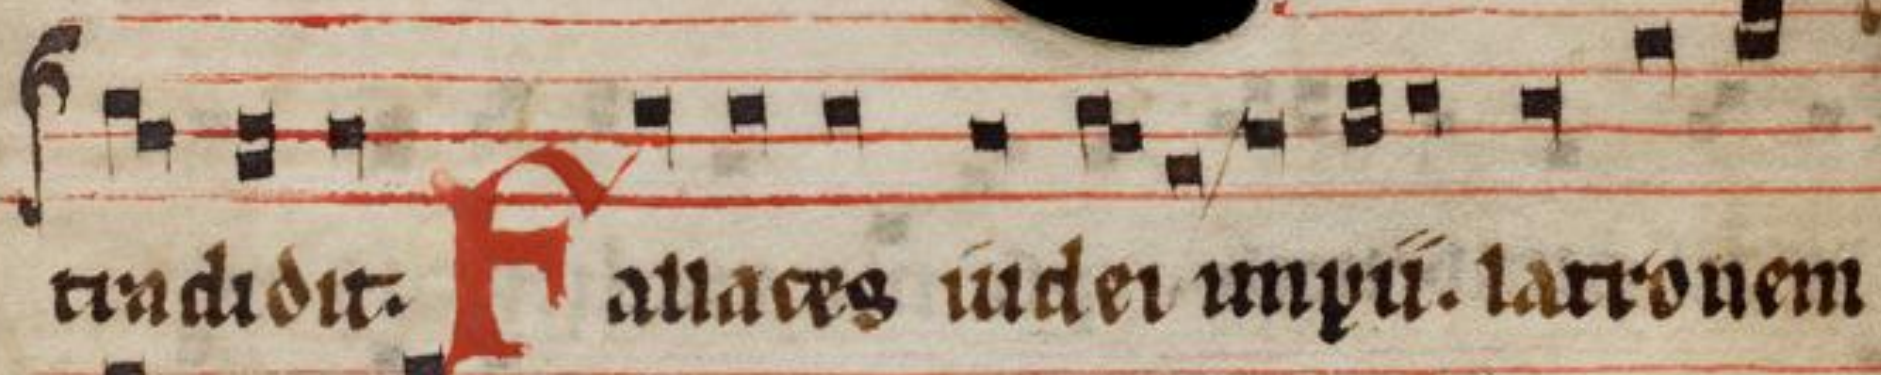 tradidit. Fallaces iudei impii. latronem